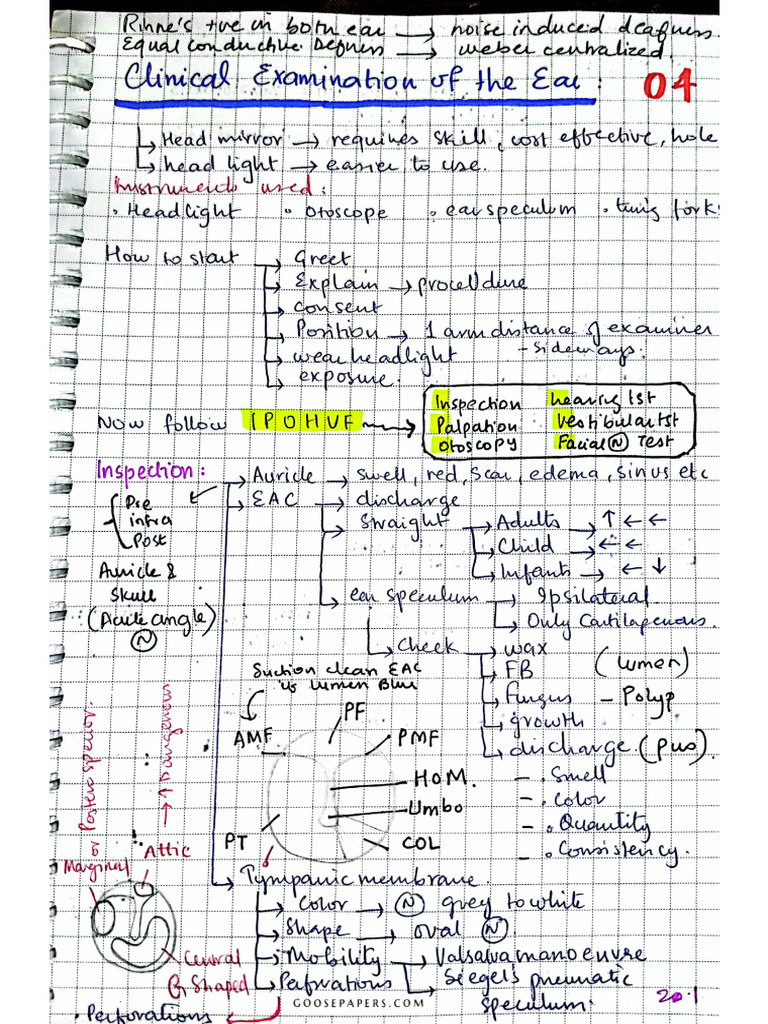 Rinne's +ve in both ear → noise induced deafness.
Equal conductive Defness → weber centralized.
Clinical Examination of the Ear : 04
Head mirror → requires skill, cost effective, hole
head light → easier to use.
Instruments used:
• Headlight • otoscope • ear speculum • tunig fork.
How to start → Greet
Explain → procedure
consent
Position → 1 arm distance of examiner
- sideways.
wear headlight
exposure.
Now follow IPOHVF →
Inspection hearing tst
Palpation Vestibular tst
Otoscopy Facial (N) Test
Inspection:
Auricle → swell, red, scar, edema, sinus etc
Pre
infra
Post
EAC → discharge
Straight → Adults → ↑ ← ←
Child → ← ←
Infants → ← ↓
Auricle &
Skull
(Acute angle)
(N)
ear speculum → Ipsilateral
Only Cartilagenous.
Check → wax
FB (lumen)
fungus - Polyp
growth
discharge (pus).
- . Smell
- . color
- . Quantity
- . Consistency.
Suction clean EAC
is lumen Blur
AMF
PF
PMF
HOM.
Umbo
COL
PT
or Postero sperior.
→ ↑ Dangerous
Marginal
Attic
Central
Shaped
Tympanic membrane.
Color → (N) grey to white
Shape → oval (N)
Mobility → Valsalva manoeuvre
Seigel's pneumatic
speculum.
Perforations
• Perforations
GOOSEPAPERS.COM
20.1